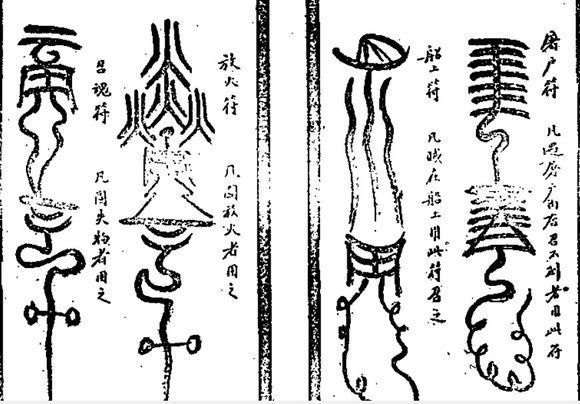 屠户符
凡遇屠户 召不到者用此符
船上符
凡贼在船上用此符召之
放火符
凡 放火者用之
魂符
凡 失物者用之